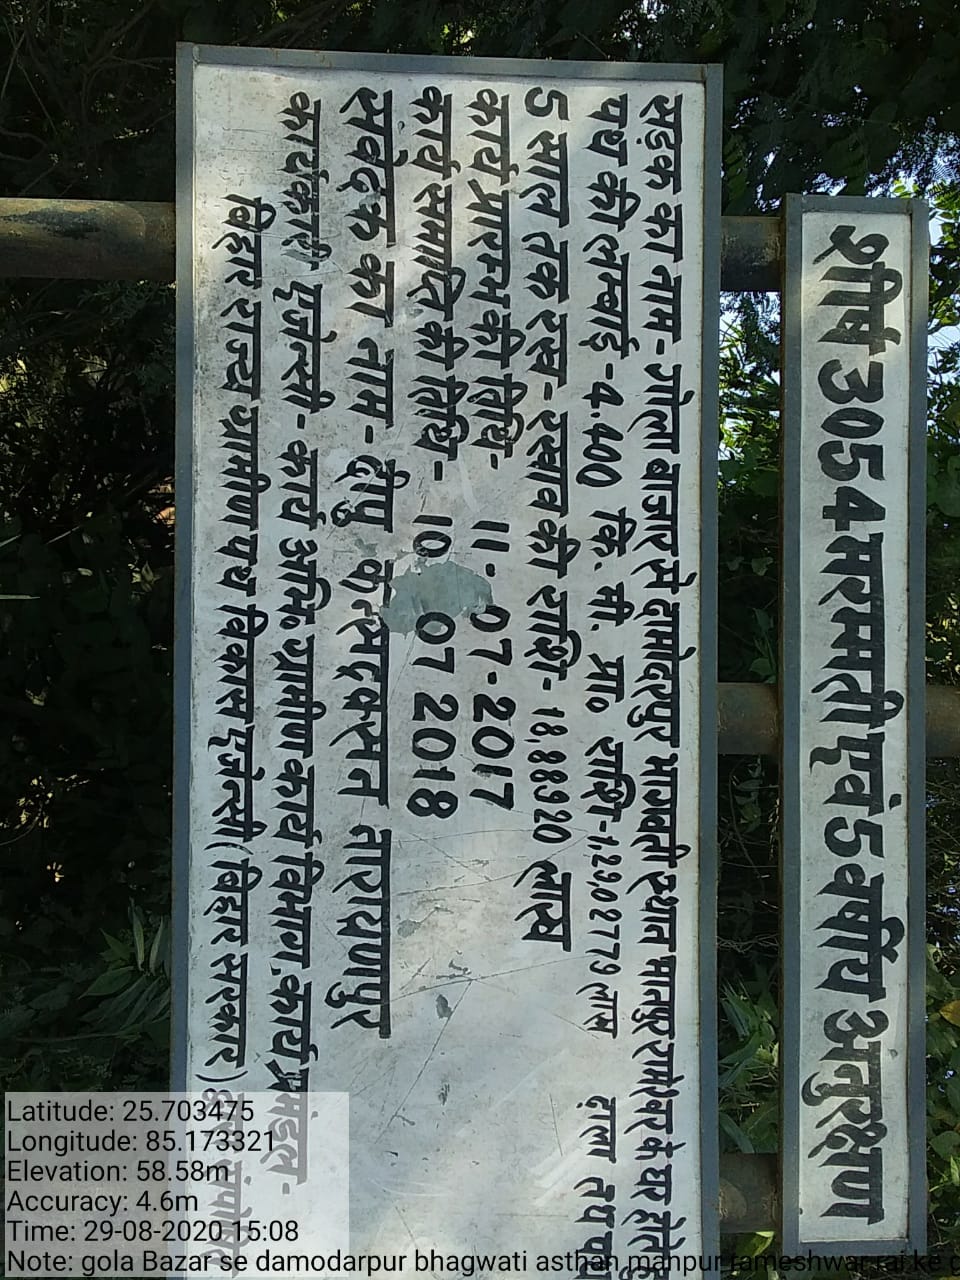 शीर्ष 3054 मरम्मती एवं 5 वर्षीय अनुरक्षण
सड़क का नाम- गोला बाजार से दामोदरपुर भगवती स्थान मानपुर रामेश्वर के घर होते हु
पथ की लम्बाई -4.400 कि. मी. प्रा० राशि-1,29,02779 लाख हाला तय पथ
5 साल तक रख-रखाव की राशि- 18,88920 लाख
कार्य प्रारम्भ की तिथि- 11-07-2017
कार्य समाप्ति की तिथि- 10 07 2018
संवेदक का नाम- दीपु कंन्सट्रक्सन नारायणपुर
कार्यकारी एजेन्सी- कार्य अभि० ग्रामीण कार्य विभाग, कार्य प्रमंडल-
बिहार राज्य ग्रामीण पथ विकास एजेन्सी (बिहार सरकार)
Latitude: 25.703475
Longitude: 85.173321
Elevation: 58.58m
Accuracy: 4.6m
Time: 29-08-2020 15:08
Note: gola Bazar se damodarpur bhagwati asthan manpur rameshwar rai ke g